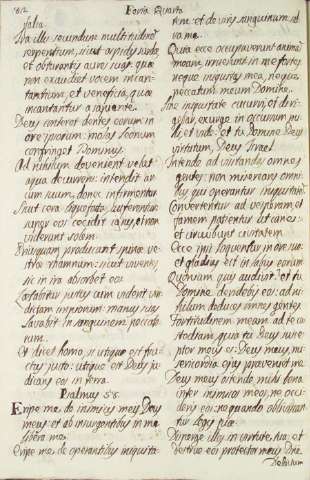 812
Feria Quarta
falsa.
Ira illis secundum similitudinem
serpentum, sicut aspidis surdæ,
et obturantis aures suas. quæ
non exaudiet vocem incan-
tantium, et venefici, quæ
incantantur a sapiente.
Deus conteret dentes eorum in
ore ipsorum: molas leonum
confringet Dominus.
Ad nihilum devenient velut
aqua decurrens: intendit ar
cum suum, donec infirmentur.
Sicut cera liquefacta, auferentur:
super eos cecidit ignis, et non
viderunt solem.
Priusquam producant spinæ ve-
stræ rhamnum: sicut viventes,
sic in ira absorbet eos.
Lætabitur justus cum viderit vin-
dictam impiorum: manus suas
lavabit in sanguinem peccato
rum.
Et dicet homo, si utique est fru-
ctus justo: utique est Deus ju-
dicans eos in terra.
Psalmus 58.
Eripe me de inimicis meis Deus
meus: et ab insurgentibus in me
libera me.
Eripe me de operantibus iniquita-
tem: et de viris sanguinum sal
va me.
Quia ecce occupaverunt animam
meam, irruerunt in me fortes.
neque iniquitas mea, neque
peccatum meum Domine.
Sine iniquitate cucurri, et di-
rexi, exurge in occursum me
um, et vide: et tu Domine Deus
virtutum, Deus Israel.
Intende ad visitandas omnes
gentes: non misereris omni-
bus qui operantur iniquitatem.
Convertentur ad vesperam, et
famem patientur ut canes:
et circuibunt civitatem.
Ecce ipsi loquentur in ore suo,
et gladius est in labiis eorum
Quoniam quis audivit? et tu
Domine deridebis eos: ad ni-
hilum deduces omnes gentes.
Fortitudinem meam ad te cu
stodiam, quia tu Deus susce-
ptor meus es: Deus meus, mi-
sericordia ejus præveniet me.
Deus meus ostendit mihi bona
inter inimicos meos, ne occi-
deris eos: ne quando obliviscan-
tur legis tuæ.
Disperge illos in virtute tua, et
destrue eos protector meus Dñe.